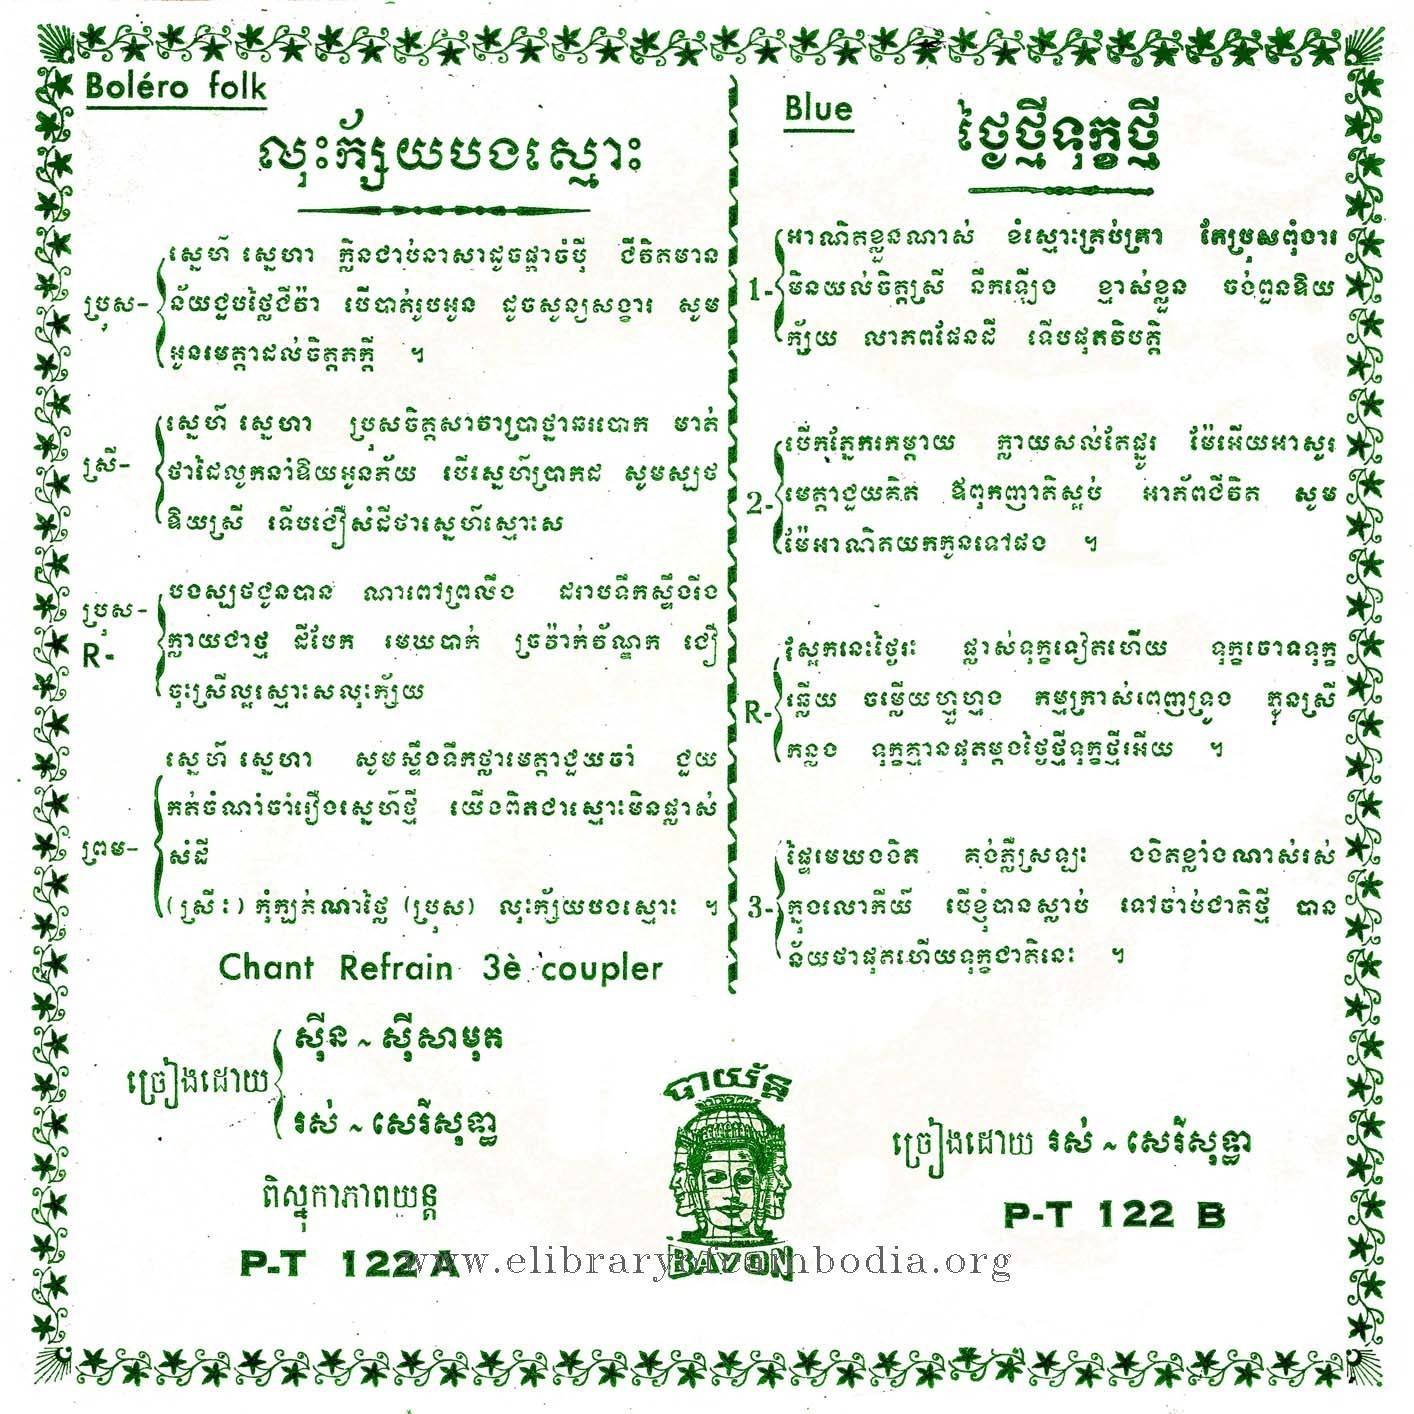 Boléro folk
លុះក្ស័យបងស្មោះ
ស្នេហ៍ ស្នេហា ក្លិនជាប់នាសាដូចផ្កាចំប៉ី ជីវិតមាន
ប្រុស- ន័យជួបថ្លៃជីវ៉ា បើបាត់រូបអូន ដូចសូន្យសង្ខារ សូម
អូនមេត្តាដល់ចិត្តភក្តី ។
ស្នេហ៍ ស្នេហា ប្រុសចិត្តសាវាប្រាថ្នាឆរបោក មាត់
ស្រី- ថាដៃលូកនាំឱយអូនភ័យ បើស្នេហ៍ប្រាកដ សូមស្បថ
ឱយស្រី ទើបជឿសំដីថាស្នេហ៍ស្មោះស
បងស្បថជូនបាន ណាពៅព្រលឹង ដរាបទឹកស្ទឹងរីង
ប្រុស-
R- ក្លាយជាថ្ម ដីបែក មេឃបាក់ ច្រវ៉ាក់វ័ណ្ឌក ជឿ
ចុះស្រីល្អស្មោះសលុះក្ស័យ
ស្នេហ៍ ស្នេហា សូមស្ទឹងទឹកថ្លាមេត្តាជួយចាំ ជួយ
កត់ចំណាំចាំរឿងស្នេហ៍ថ្មី យើងពិតជាស្មោះមិនផ្លាស់
ព្រម- សំដី
(ស្រី៖) កុំក្បត់ណាថ្លៃ (ប្រុស) លុះក្ស័យបងស្មោះ ។
Chant Refrain 3è coupler
ច្រៀងដោយ
ស៊ីន ~ ស៊ីសាមុត
រស់ ~ សេរីសុទ្ធា
ពិស្នុកាភាពយន្ត
P-T 122 A
Blue
ថ្ងៃថ្មីទុក្ខថ្មី
អាណិតខ្លួនណាស់ ខំស្មោះគ្រប់គ្រា តែប្រុសពុំងារ
1- មិនយល់ចិត្តស្រី នឹកឡើង ខ្មាស់ខ្លួន ចង់ពួនឱយ
ក្ស័យ លាភពផែនដី ទើបផុតវិបត្តិ
បើកភ្នែករកម្តាយ ក្លាយសល់តែផ្នូរ ម៉ែអើយអាសូរ
2- មេត្តាជួយគិត ឪពុកញាតិស្អប់ អាភ័ពជីវិត សូម
ម៉ែអាណិតយកកូនទៅផង ។
ស្អែកនេះថ្ងៃរះ ផ្លាស់ទុក្ខទៀតហើយ ទុក្ខចោទទុក្ខ
R- ឆ្លើយ ចម្លើយហ្មួហ្មង កម្មក្រាស់ពេញទ្រូង ភ្លូនស្រី
កន្លង ទុក្ខគ្មានផុតម្តងថ្ងៃថ្មីទុក្ខថ្មីអើយ ។
ផ្ទៃមេឃងងិត គង់ភ្លឺស្រឡះ ងងិតខ្លាំងណាស់រស់
3- ក្នុងលោកីយ៍ បើខ្ញុំបានស្លាប់ ទៅចាប់ជាតិថ្មី បាន
ន័យថាផុតហើយទុក្ខជាតិនេះ ។
ច្រៀងដោយ រស់ ~ សេរីសុទ្ធា
P-T 122 B
បាយ័ន
BAYON
www.elibraryofcambodia.org